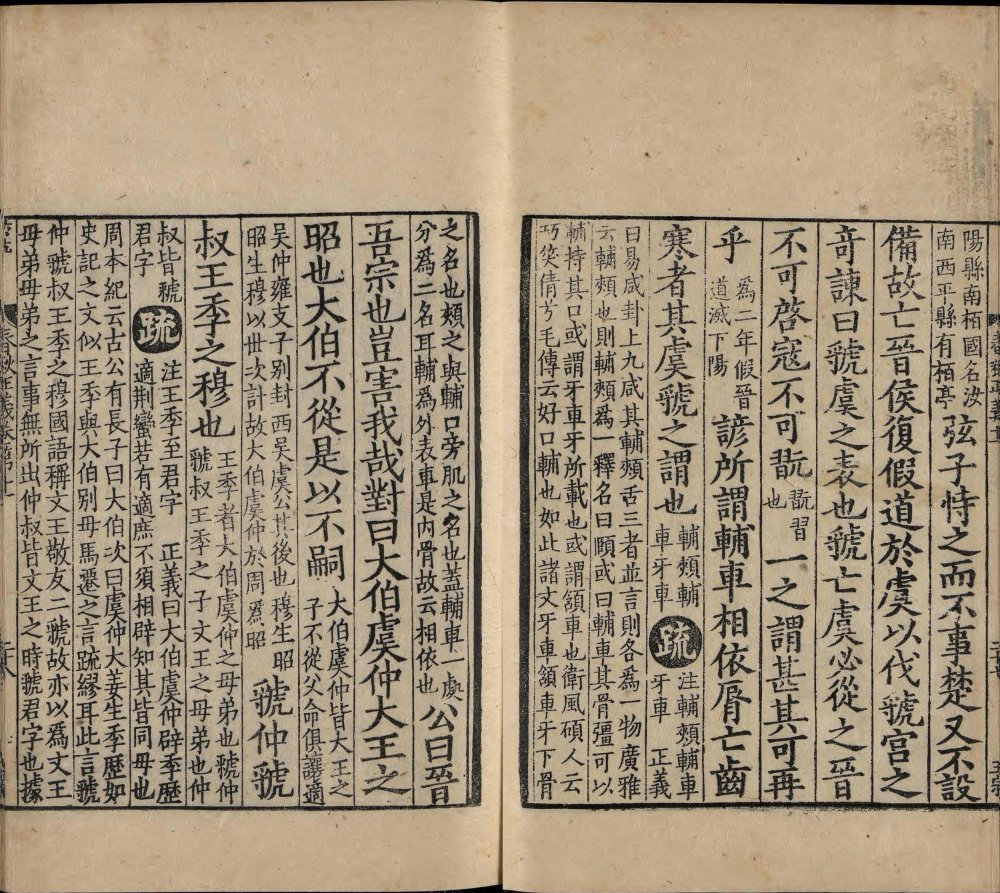 陽縣南栢國名汝南西平縣有栢亭弦子恃之而不事楚又不設
備故亡晉侯復假道於虞以伐虢宮之
奇諫曰虢虞之表也虢亡虞必從之晉
不可啓寇不可翫翫習也一之謂甚其可再
乎為二年假晉道滅下陽諺所謂輔車相依脣亡齒
寒者其虞虢之謂也輔頰輔車牙車疏注輔頰輔車牙車 正義
曰易咸卦上九咸其輔頰舌三者並言則各為一物廣雅
云輔頰也則輔頰爲一釋名曰頤或曰輔車其骨彊可以
輔持其口或謂牙車牙所載也或謂頷車也衛風碩人云
巧笑倩兮毛傳云好口輔也如此諸文牙車頷車牙下骨
之名也頰之與輔口旁肌之名也蓋輔車一處
分爲二名耳輔為外表車是内骨故云相依也公曰晉
吾宗也豈害我哉對曰大伯虞仲大王之
昭也大伯不從是以不嗣大伯虞仲皆大王之子不從父命俱讓適
吳仲雍支子別封西吳虞公其後也穆生昭昭生穆以世次計故大伯虞仲於周爲昭虢仲虢
叔王季之穆也王季者大伯虞仲之母弟也虢仲虢叔王季之子文王之母弟也仲
叔皆虢君字疏注王季至君字 正義曰大伯虞仲辟季歷適荆蠻若有適庶不須相辟知其皆同母也
周本紀云古公有長子曰大伯次曰虞仲大姜生季歷如
史記之文似王季與大伯別母馬遷之言疏繆耳此言虢
仲虢叔王季之穆國語稱文王敬友二虢故亦以爲文王
母弟母弟之言事無所出仲叔皆文王之時虢君字也據